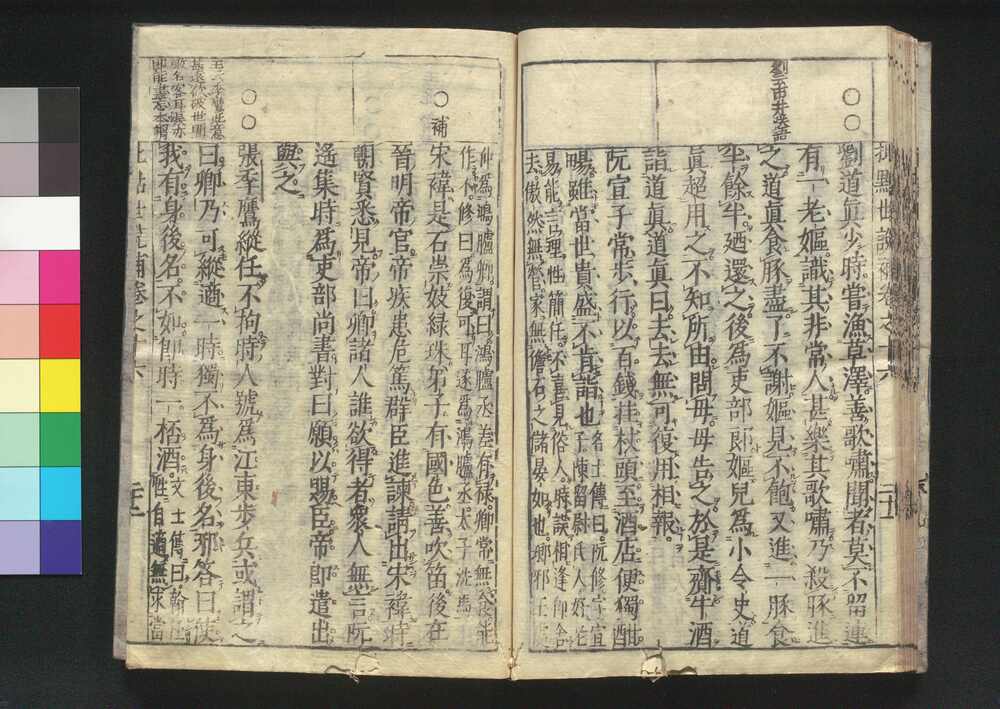 劉云市井笑語
〇〇
批點世說補卷之十六
劉道眞少時嘗漁草澤善歌嘯聞者莫不留連
有一老嫗識其非常人甚樂其歌嘯乃殺豚進
之道眞食豚盡了不謝嫗見不飽又進一豚食
半餘半廼還之後為吏部郎嫗兒為小令史道
眞超用之不知所由問母母告之於是齎牛酒
詣道眞道眞曰去去無可復用相報
阮宣子常步行以百錢挂杖頭至酒店便獨酣
暢雖當世貴盛不肯詣也
名士傳曰阮修字宣
子陳留尉氏人好老
易能言理性簡任不喜見俗人時誤相逢即舍
去傲然無營家無儋石之儲晏如也琅邪王
仲為鴻臚卿謂曰鴻臚丞差有祿卿常無食能
作不修曰為復可耳遂為鴻臚丞太子洗馬
〇補
宋褘是石崇妓綠珠弟子有國色善吹笛後在
晉明帝宫帝疾患危篤群臣進諫請出宋褘時
朝賢悉見帝曰卿諸人誰欲得者衆人無言阮
遙集時爲吏部尚書對曰願以賜臣帝即遣出
與之
〇〇
張季鷹縱任不拘時人號爲江東步兵或謂之
曰卿乃可縱適一時獨不爲身後名邪答曰使
我有身後名不如即時一桮酒
文士傳曰翰任
性自適無求當